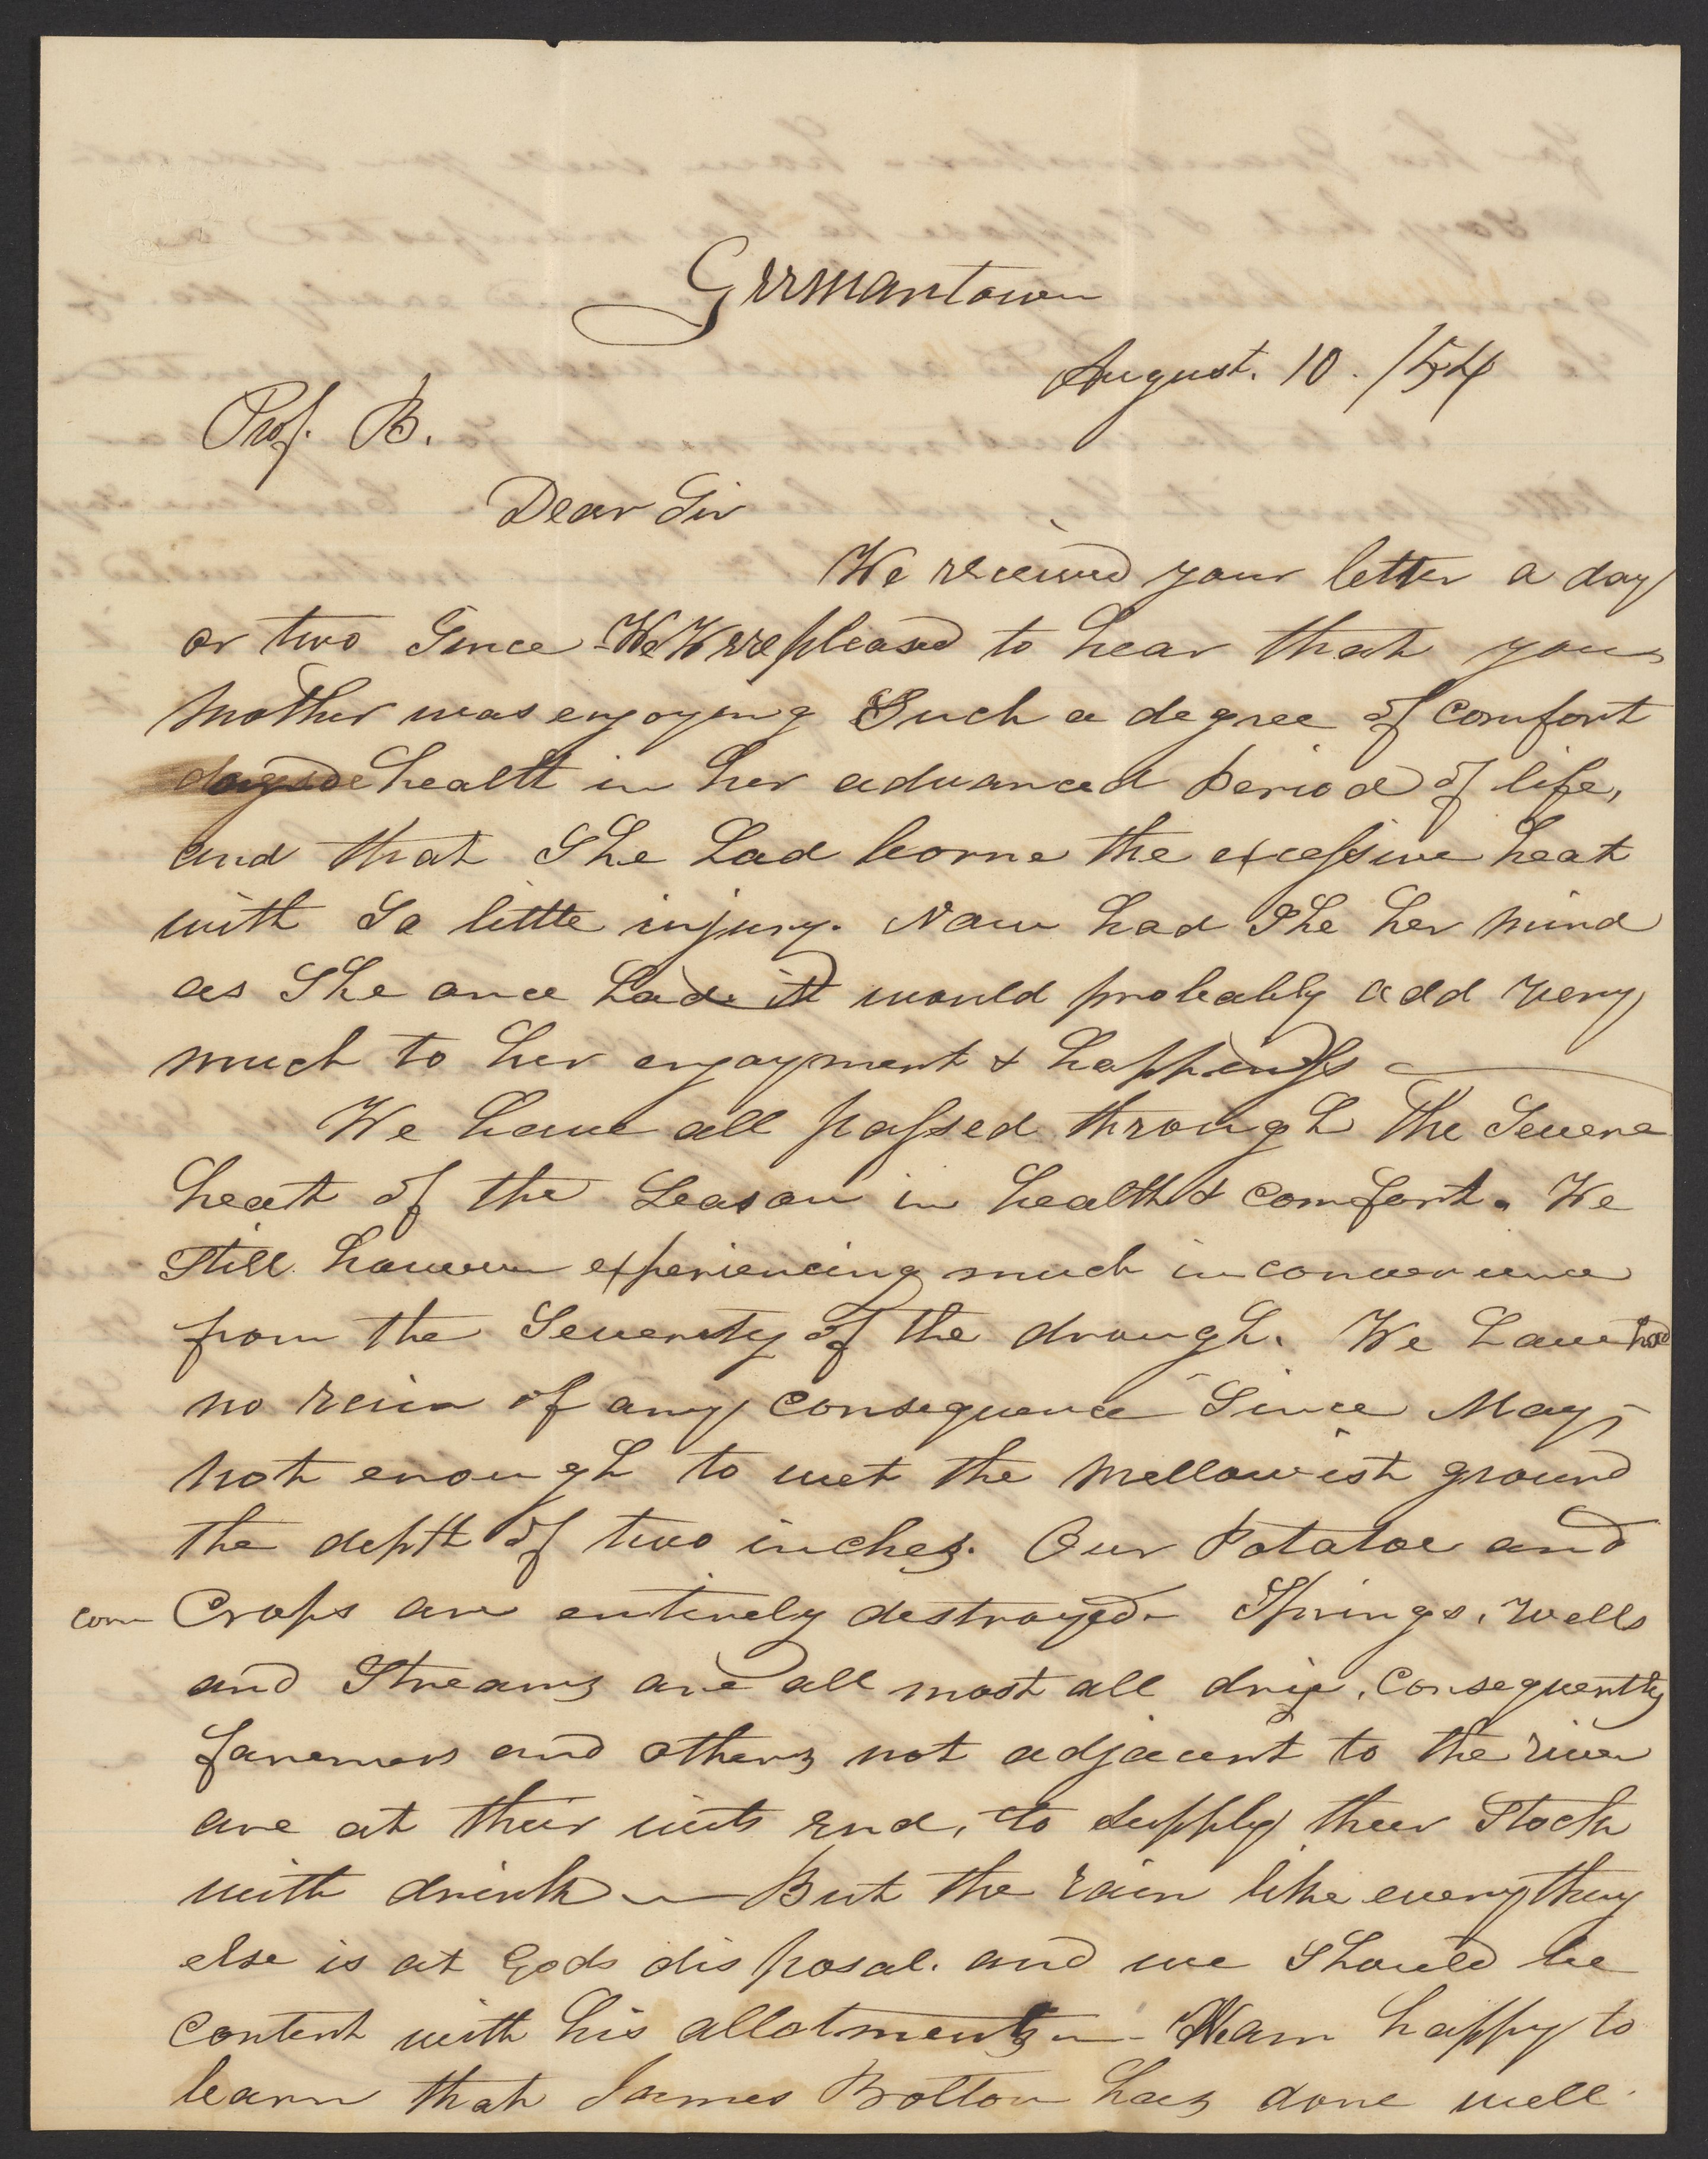 Germantown
August. 10. /54
Prof. B.
Dear Sir
We received your letter a day
or two Since - We Were pleased to hear that your
mother was enjoying Such a degree of comfort
health in her advanced period of life,
and that She had borne the excessive heat
with So little injury. Now had She her mind
as She once had it would probably add very
much to her enjoyment & happiness —
We have all passed through the Severe
heat of the Season in health & comfort. We
Still however experiencing much inconvenience
from the Severity of the drough. We have had
no rain of any consequence Since May,
not enough to wet the mellowist ground
the depth of two inches. Our Potatoe and
corn Crops are entirely destroyed - Springs, wells
and Streams are all most all drie, consequently
faremers and others not adjacent to the river
are at their wits end, to Supply their Stock
with drink — But the rain like everything
else is at Gods disposal. and we Should be
content with his allotments — am happy to
learn that James Botton has done well